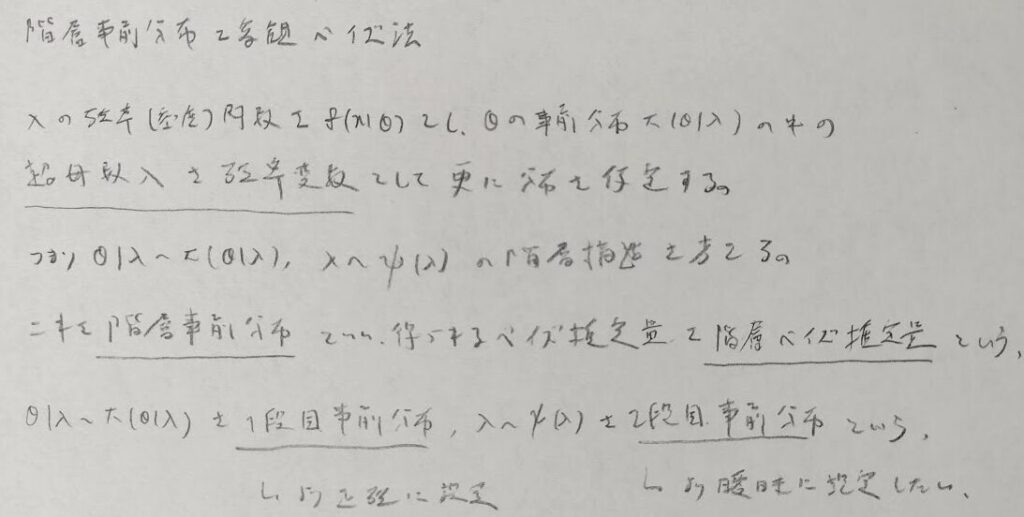 階層事前分布と多段ベイズ法
xの確率(密度)関数をf(x|θ)とし、θの事前分布π(θ|λ)のその
超母数λを確率変数として更に分布を仮定する。
つまりθ|λ~π(θ|λ), λ~ψ(λ)の階層構造を考える。
これを階層事前分布といい、得られるベイズ推定量を階層ベイズ推定量という。
θ|λ~π(θ|λ)を1段目事前分布, λ~ψ(λ)を2段目事前分布という。
↳より正確に設定 ↳より曖昧に設定したい。